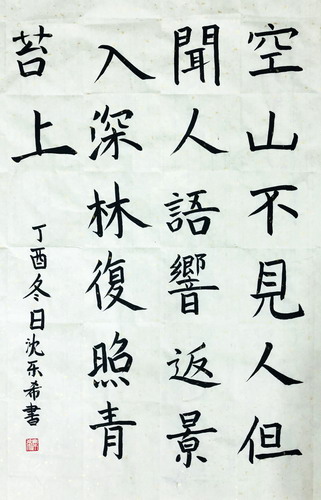 空山不見人但
聞人語響返景
入深林復照青
苔上
丁酉冬日沈乐希書